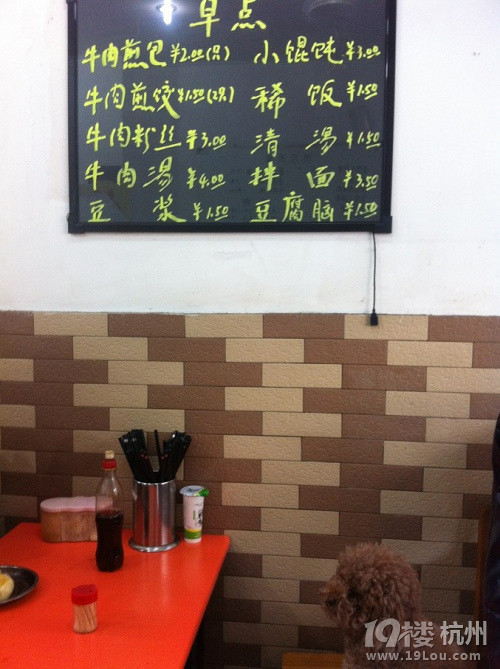 早点
牛肉煎包¥2.00(只) 小馄饨¥3.00
牛肉煎饺¥1.50(2只) 稀饭¥1.50
牛肉粉丝¥3.00 清汤¥1.50
牛肉湯¥4.00 拌面¥3.50
豆浆¥1.50 豆腐脑¥1.50
19楼 杭州
www.19Lou.com